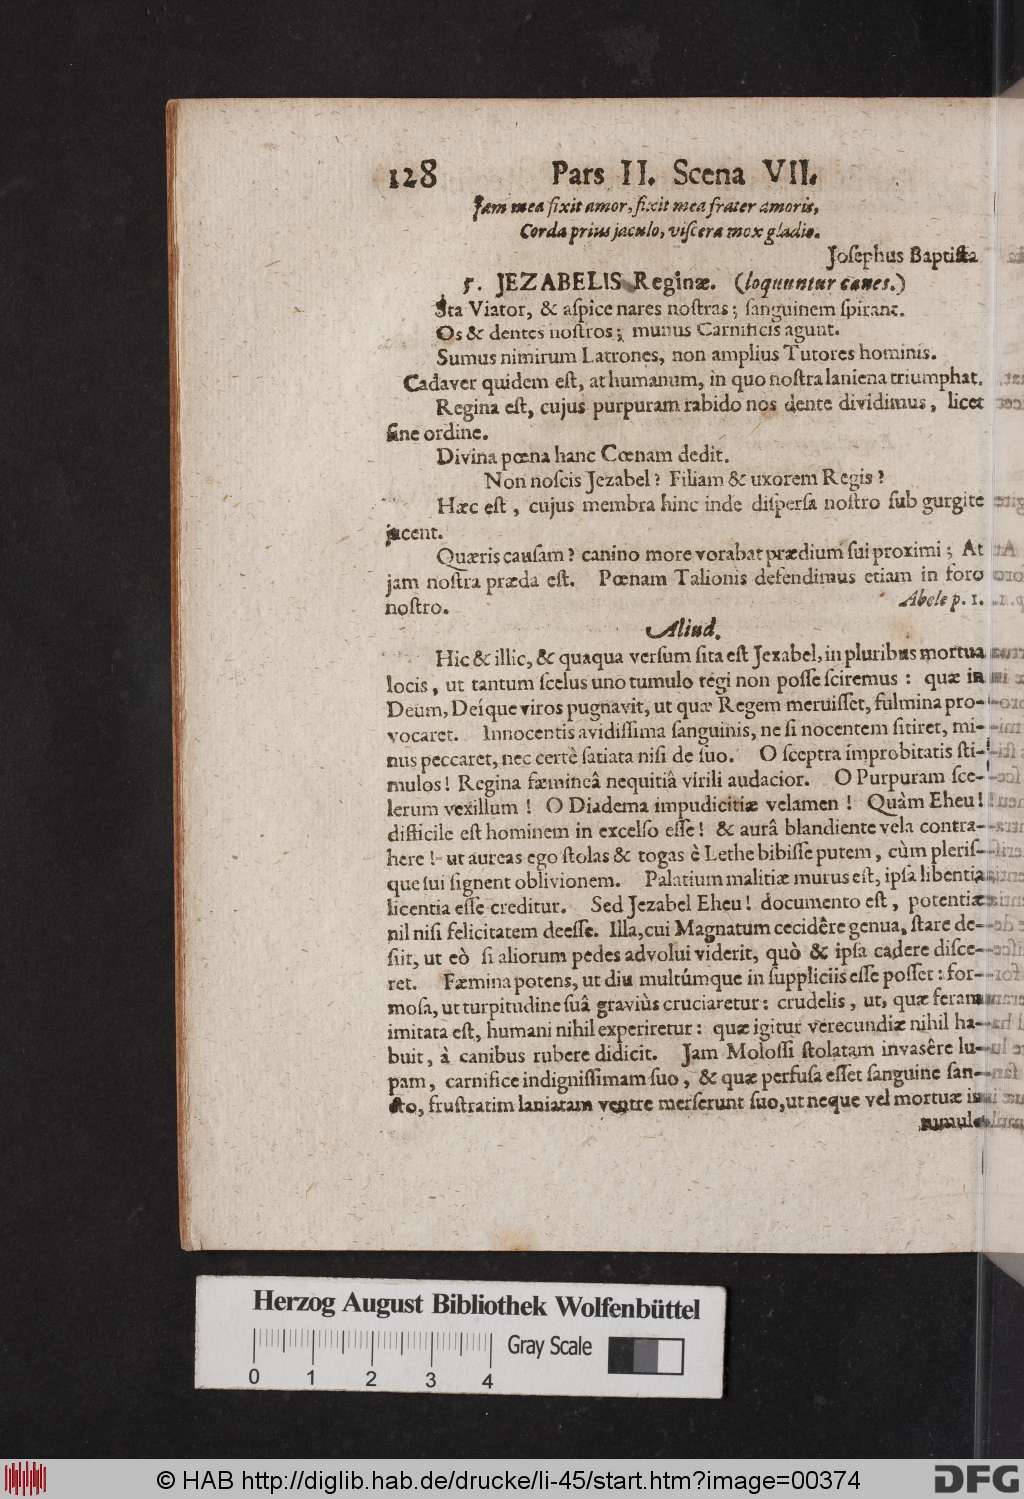 128 Pars II. Scena VII.
Jam mea fixit amor, fixit mea frater amoris,
Corda prius jaculo, viſcera mox gladio.
Joſephus Baptiſta
5. JEZABELIS Reginæ. (loquuntur canes.)
Sta Viator, & aſpice nares noſtras; ſanguinem ſpirant.
Os & dentes noſtros; munus Carnificis agunt.
Sumus nimirum Latrones, non amplius Tutores hominis.
Cadaver quidem eſt, at humanum, in quo noſtra laniena triumphat.
Regina eſt, cujus purpuram rabido nos dente dividimus, licet
ſine ordine.
Divina pœna hanc Cœnam dedit.
Non noſcis Jezabel? Filiam & uxorem Regis?
Hæc eſt, cujus membra hinc inde diſperſa noſtro ſub gurgite
jacent.
Quæris cauſam? canino more vorabat prædium ſui proximi; At
jam noſtra præda eſt. Pœnam Talionis defendimus etiam in foro
noſtro. Abele p. 1.
Aliud.
Hic & illic, & quaqua verſum ſita eſt Jezabel, in pluribus mortua
locis, ut tantum ſcelus uno tumulo tegi non poſſe ſciremus: quæ in
Deum, Deíque viros pugnavit, ut quæ Regem meruiſſet, fulmina pro-
vocaret. Innocentis avidiſſima ſanguinis, ne ſi nocentem ſitiret, mi-
nus peccaret, nec certè ſatiata niſi de ſuo. O ſceptra improbitatis ſti-
mulos! Regina fæmineâ nequitiâ virili audacior. O Purpuram ſce-
lerum vexillum! O Diadema impudicitiæ velamen! Quàm Eheu!
difficile eſt hominem in excelſo eſſe! & aurâ blandiente vela contra-
here! ut aureas ego ſtolas & togas è Lethe bibiſſe putem, cùm pleriſ-
que ſui ſignent oblivionem. Palatium malitiæ murus eſt, ipſa libentia
licentia eſſe creditur. Sed Jezabel Eheu! documento eſt, potentiæ
nil niſi felicitatem deeſſe. Illa, cui Magnatum cecidêre genua, ſtare de-
ſiit, ut eò ſi aliorum pedes advolui viderit, quò & ipſa cadere diſce-
ret. Fæmina potens, ut diu multúmque in ſuppliciis eſſe poſſet: for-
moſa, ut turpitudine ſuâ graviùs cruciaretur: crudelis, ut, quæ feram
imitata eſt, humani nihil experiretur: quæ igitur verecundiæ nihil ha-
buit, à canibus rubere didicit. Jam Moloſſi ſtolatam invasêre lu-
pam, carnifice indigniſſimam ſuo, & quæ perfuſa eſſet ſanguine ſan-
cto, fruſtratim laniatam ventre merſerunt ſuo, ut neque vel mortuæ in
tumulo
Herzog August Bibliothek Wolfenbüttel
Gray Scale
0 1 2 3 4
© HAB http://diglib.hab.de/drucke/li-45/start.htm?image=00374
DFG